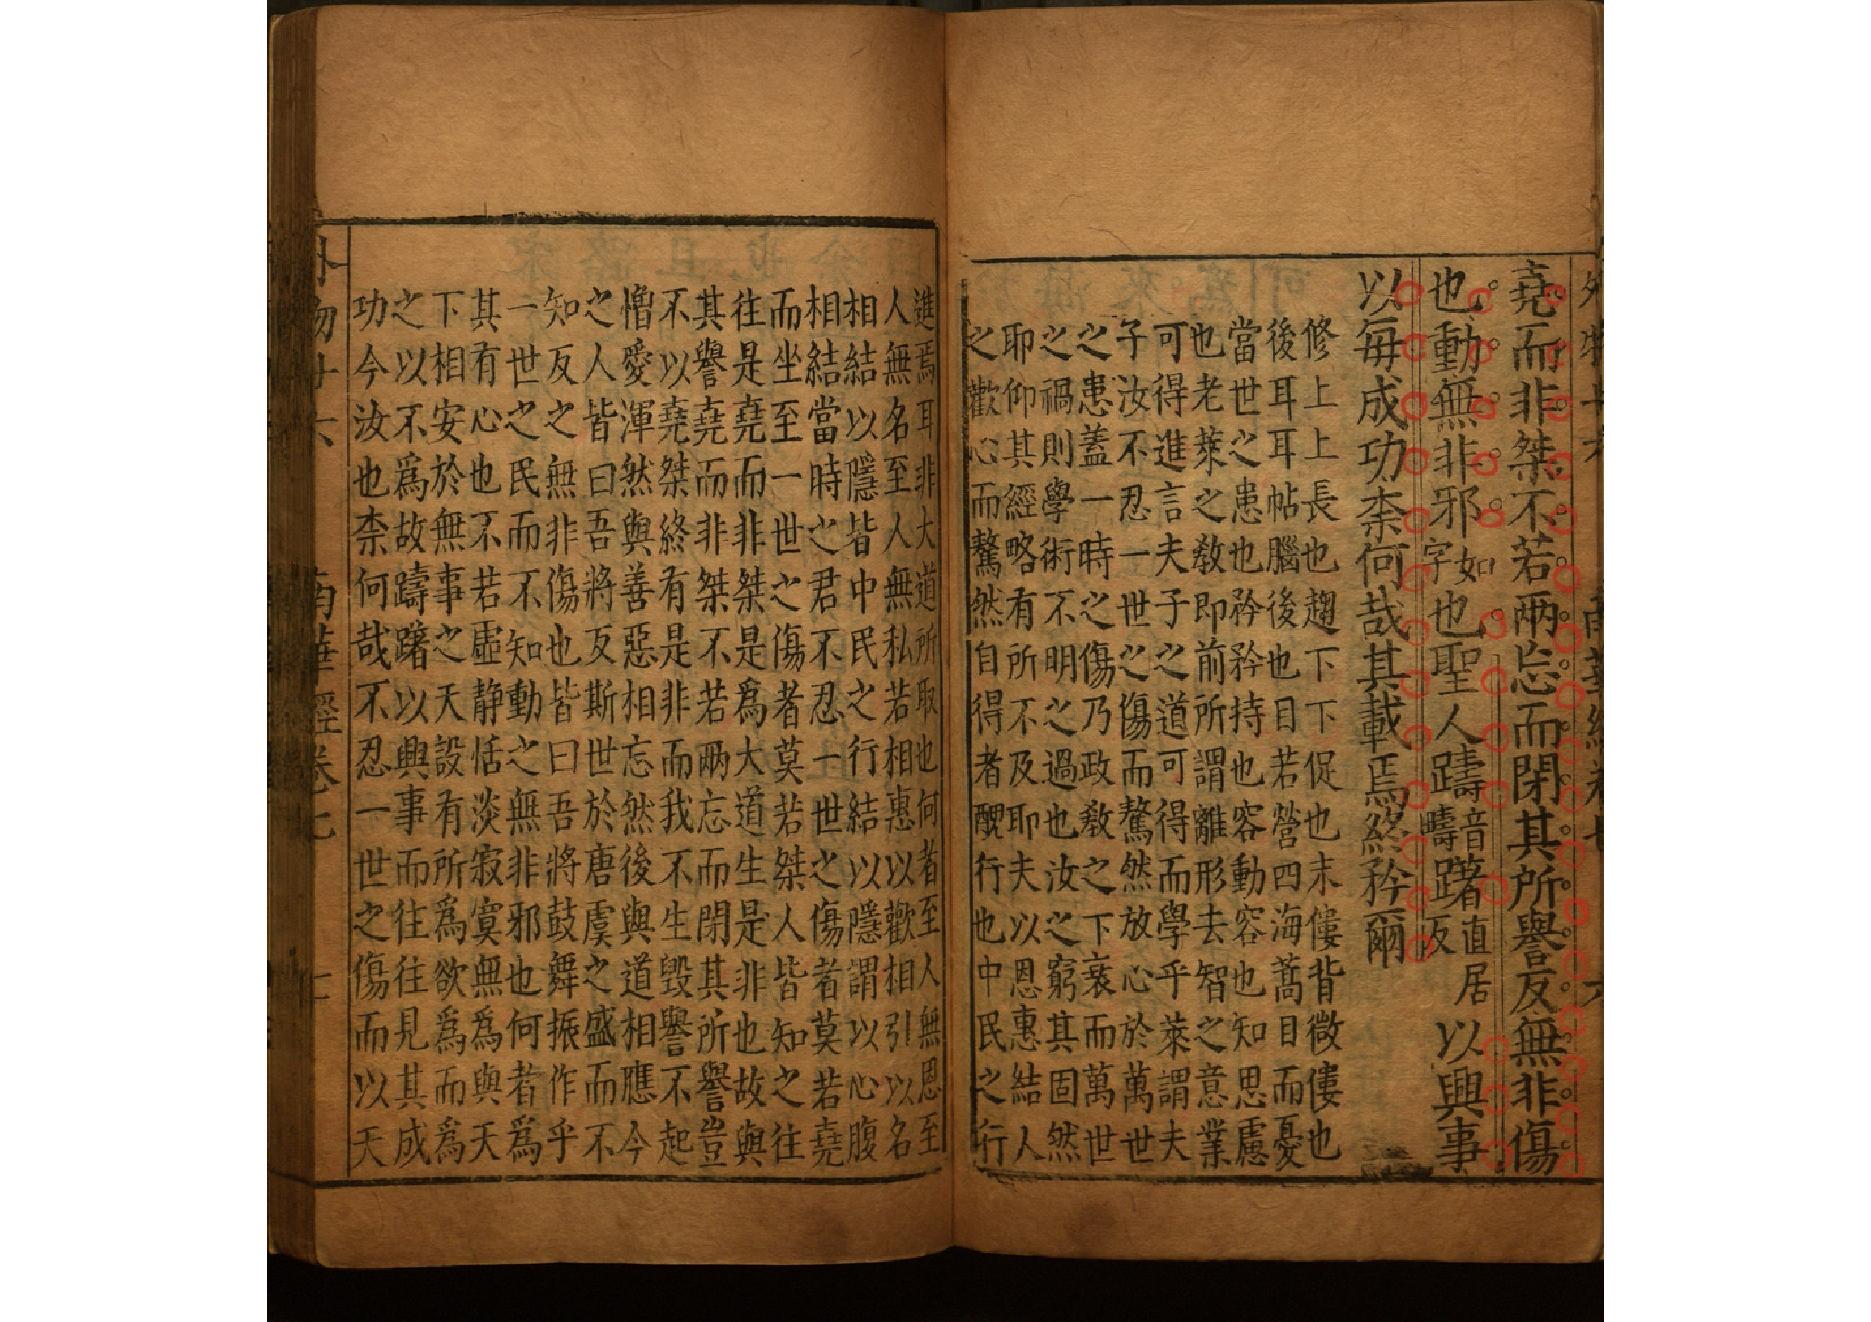 堯而非桀不若兩忘而閉其所譽反無非傷
也動無非邪如字也聖人躊音疇躇直居反以興事
以每成功柰何哉其載焉終矜爾
修上上長也趨下下促也末僂背微僂也
後耳耳帖腦後也目若營四海蒿目而憂
當世之患也矜矜持也容動容也知思慮
也老萊之敎即前所謂離形去智之意業
可得進言夫子之道可得而學乎萊謂夫
子汝不忍一世之傷而驁然放心於萬世
之患蓋一時之傷乃政敎之下衰而萬世
之禍則學術不明之過也汝之窮其固然
耶仰其經略有所不及耶夫以恩惠結人
之歡心而驁然自得者醜行也中民之行
進焉耳非大道所取也何者至人無恩至
人無名至人無私若相惠以歡相引以名
相結以隱皆中民之行結以隱謂以心腹
相結當時之君不忍一世之傷者莫若堯
而坐至一世之傷者莫若桀人皆知之往
往是堯而非桀是爲大道生是非也故與
其譽堯而非桀不若兩忘而閉其所譽豈
不以堯桀終有是非而我不生毀譽不起
憎愛渾然與善惡相忘然後與道相應今
之人皆曰吾將反斯世於唐虞之盛而不
知反之無非傷也皆曰吾將鼓舞振作乎
一世之民而不知動之無非邪也何者爲
其有心也不若虛静恬淡寂寞無爲與天
下相安於無事之天設有所爲欲爲而爲
之以不爲故躊躇以興事而往往見其成
功今汝也柰何哉不忍一世之傷而以天